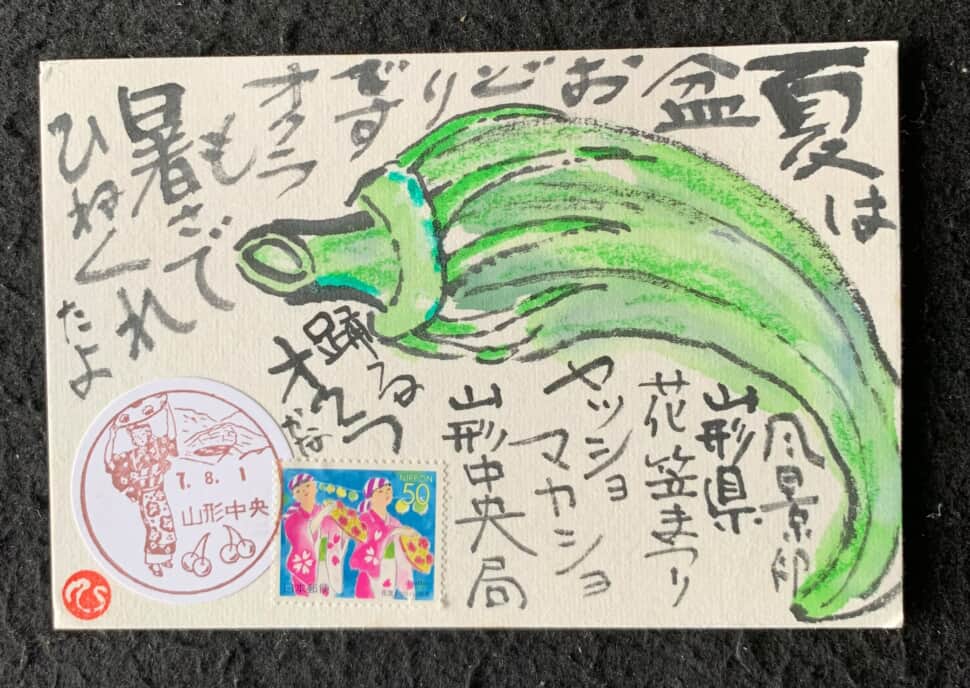 夏は
お盆
どりごです
オクラも
暑さで
ひねくれ
たよ
風景印
山形県
花笠まつり
ヤッショ
マカショ
山形中央局
踊る
7.8.1
山形中央
NIPPON
50
日本郵便